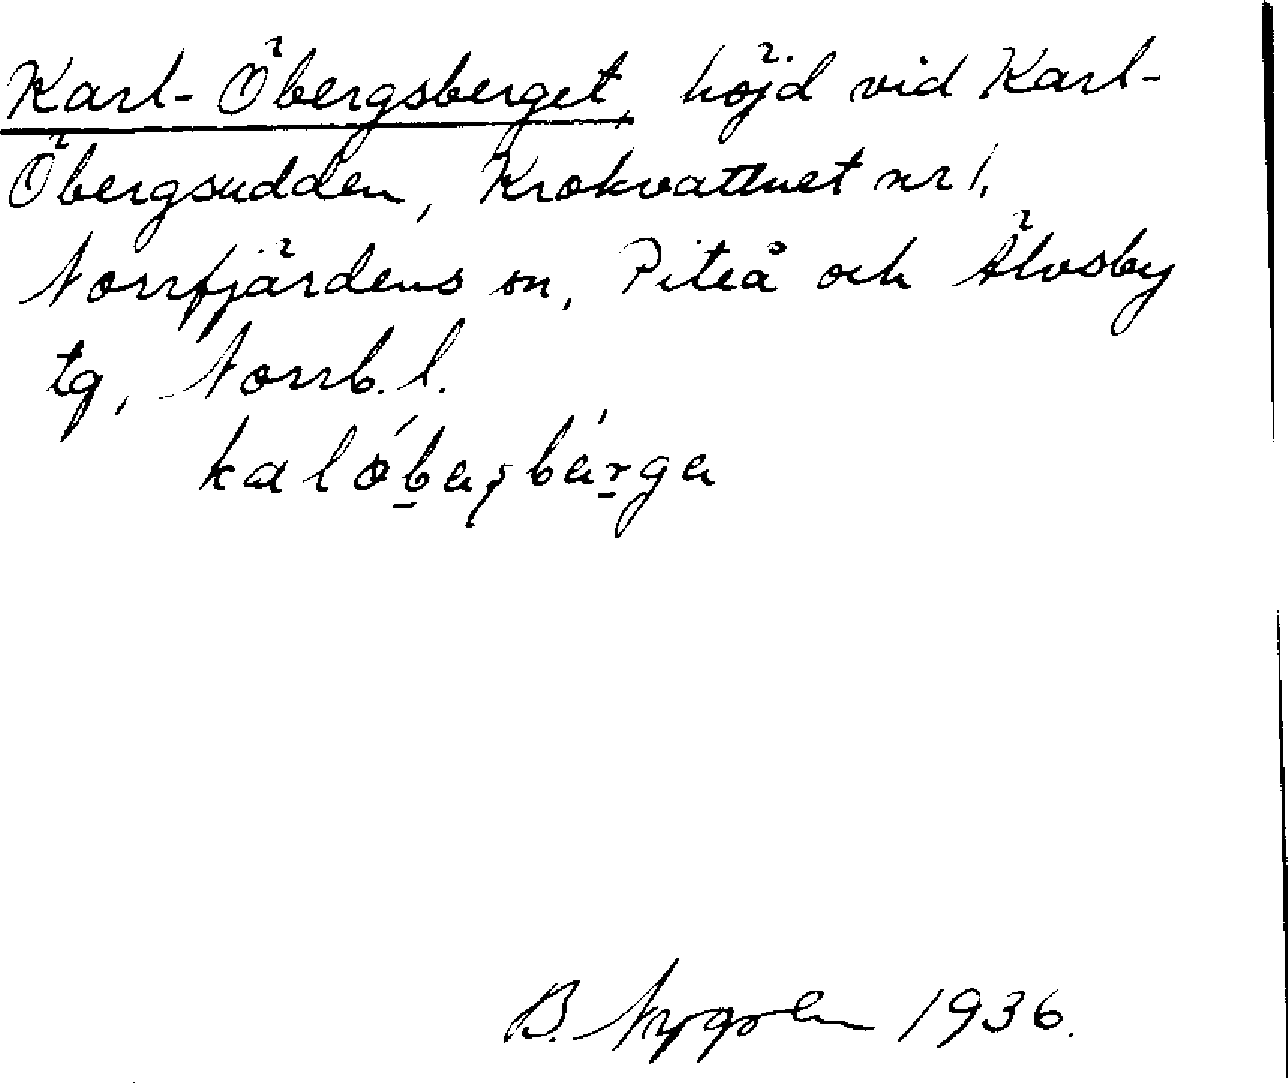 Karl-Öbergsberget, höjd vid Karl-
Öbergsudden, Krokvattnet nr 1,
Norrfjärdens sn, Piteå och Älvsby
tg, Norrb. l.
B. Nygren 1936.